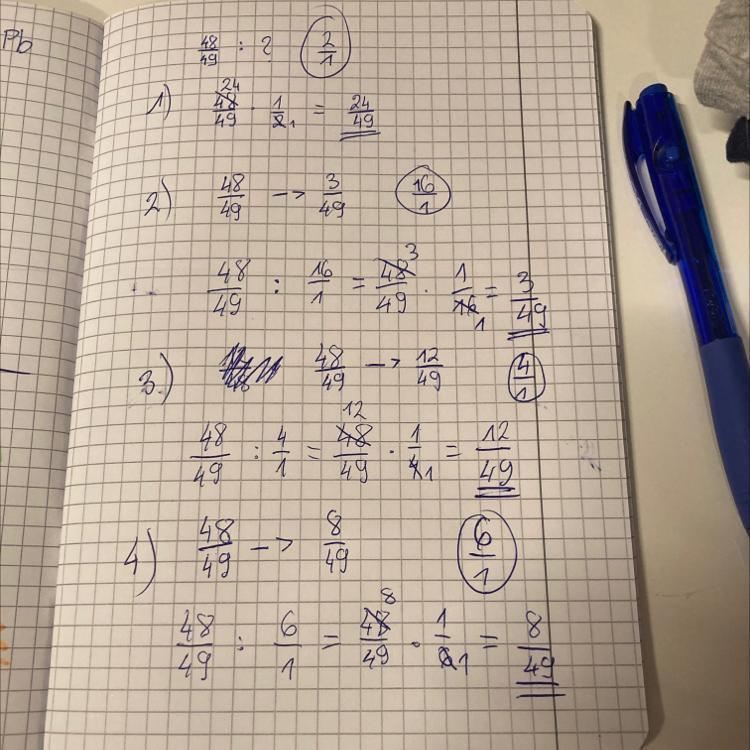 Pb
48/49 : 2 2/1
1) 48/49 24 · 1/2 1 = 24/49
2) 48/49 -> 3/49 16/1
48/49 : 16/1 = 48/49 3 · 1/16 1 = 3/49
3.) 48/49 -> 12/49 4/1
48/49 : 4/1 = 48/49 12 · 1/4 1 = 12/49
4) 48/49 -> 8/49 6/1
48/49 : 6/1 = 48/49 8 · 1/6 1 = 8/49